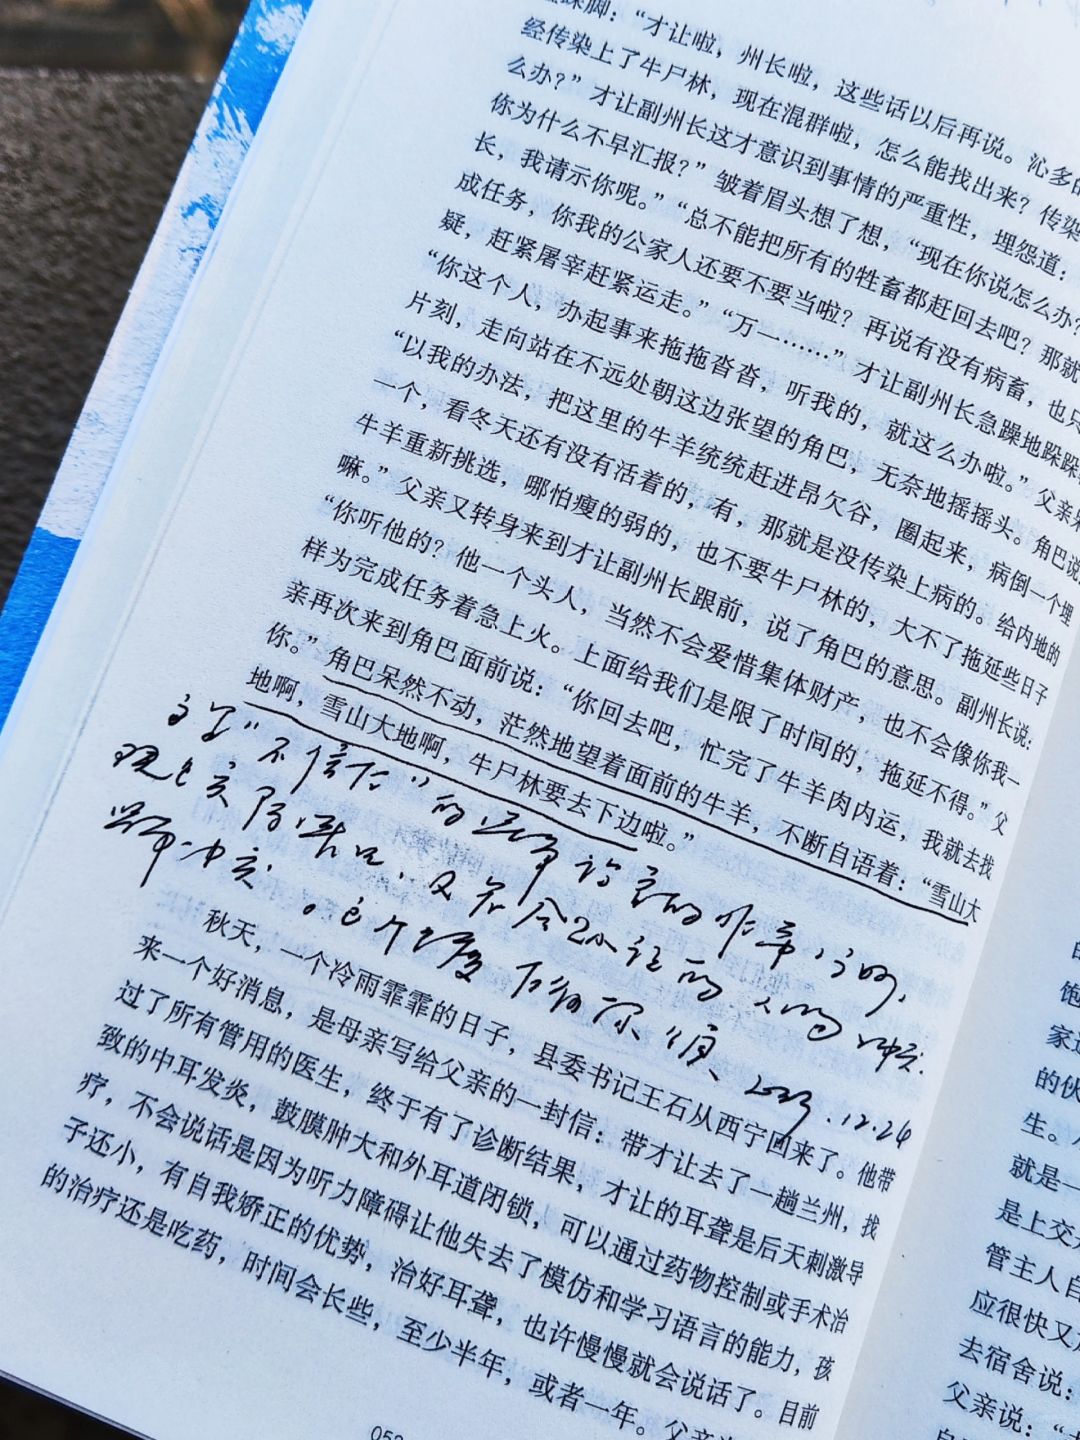 跺脚：“才让啦，州长啦，这些话以后再说。沁多的
经传染上了牛尸林，现在混群啦，怎么能找出来？传染
么办？”才让副州长这才意识到事情的严重性，埋怨道：
你为什么不早汇报？”皱着眉头想了想，“现在你说怎么办？
长，我请示你呢。”“总不能把所有的牲畜都赶回去吧？那就
成任务，你我的公家人还要不要当啦？再说有没有病畜，也只
疑，赶紧屠宰赶紧运走。”“万一……”才让副州长急躁地跺跺
“你这个人，办起事来拖拖沓沓，听我的，就这么办啦。”父亲
片刻，走向站在不远处朝这边张望的角巴，无奈地摇摇头。角巴说
“以我的办法，把这里的牛羊统统赶进昂欠谷，圈起来，病倒一个埋
一个，看冬天还有没有活着的，有，那就是没传染上病的。给内地的
牛羊重新挑选，哪怕瘦的弱的，也不要牛尸林的，大不了拖延些日子
嘛。”父亲又转身来到才让副州长跟前，说了角巴的意思。副州长说：
“你听他的？他一个头人，当然不会爱惜集体财产，也不会像你我一
样为完成任务着急上火。上面给我们是限了时间的，拖延不得。”父
亲再次来到角巴面前说：“你回去吧，忙完了牛羊肉内运，我就去找
你。”角巴呆然不动，茫然地望着面前的牛羊，不断自语着：“雪山大
地啊，雪山大地啊，牛尸林要去下边啦。”
“不信任”的
2023.12.24
秋天，一个冷雨霏霏的日子，县委书记王石从西宁回来了。他带
来一个好消息，是母亲写给父亲的一封信：带才让去了一趟兰州，找
过了所有管用的医生，终于有了诊断结果，才让的耳聋是后天刺激导
致的中耳发炎，鼓膜肿大和外耳道闭锁，可以通过药物控制或手术治
疗，不会说话是因为听力障碍让他失去了模仿和学习语言的能力，孩
子还小，有自我矫正的优势，治好耳聋，也许慢慢就会说话了。目前
的治疗还是吃药，时间会长些，至少半年，或者一年。父亲
饱
家
的伙
生。
就是一
是上交
管主人自
应很快又
去宿舍说：
父亲说：“